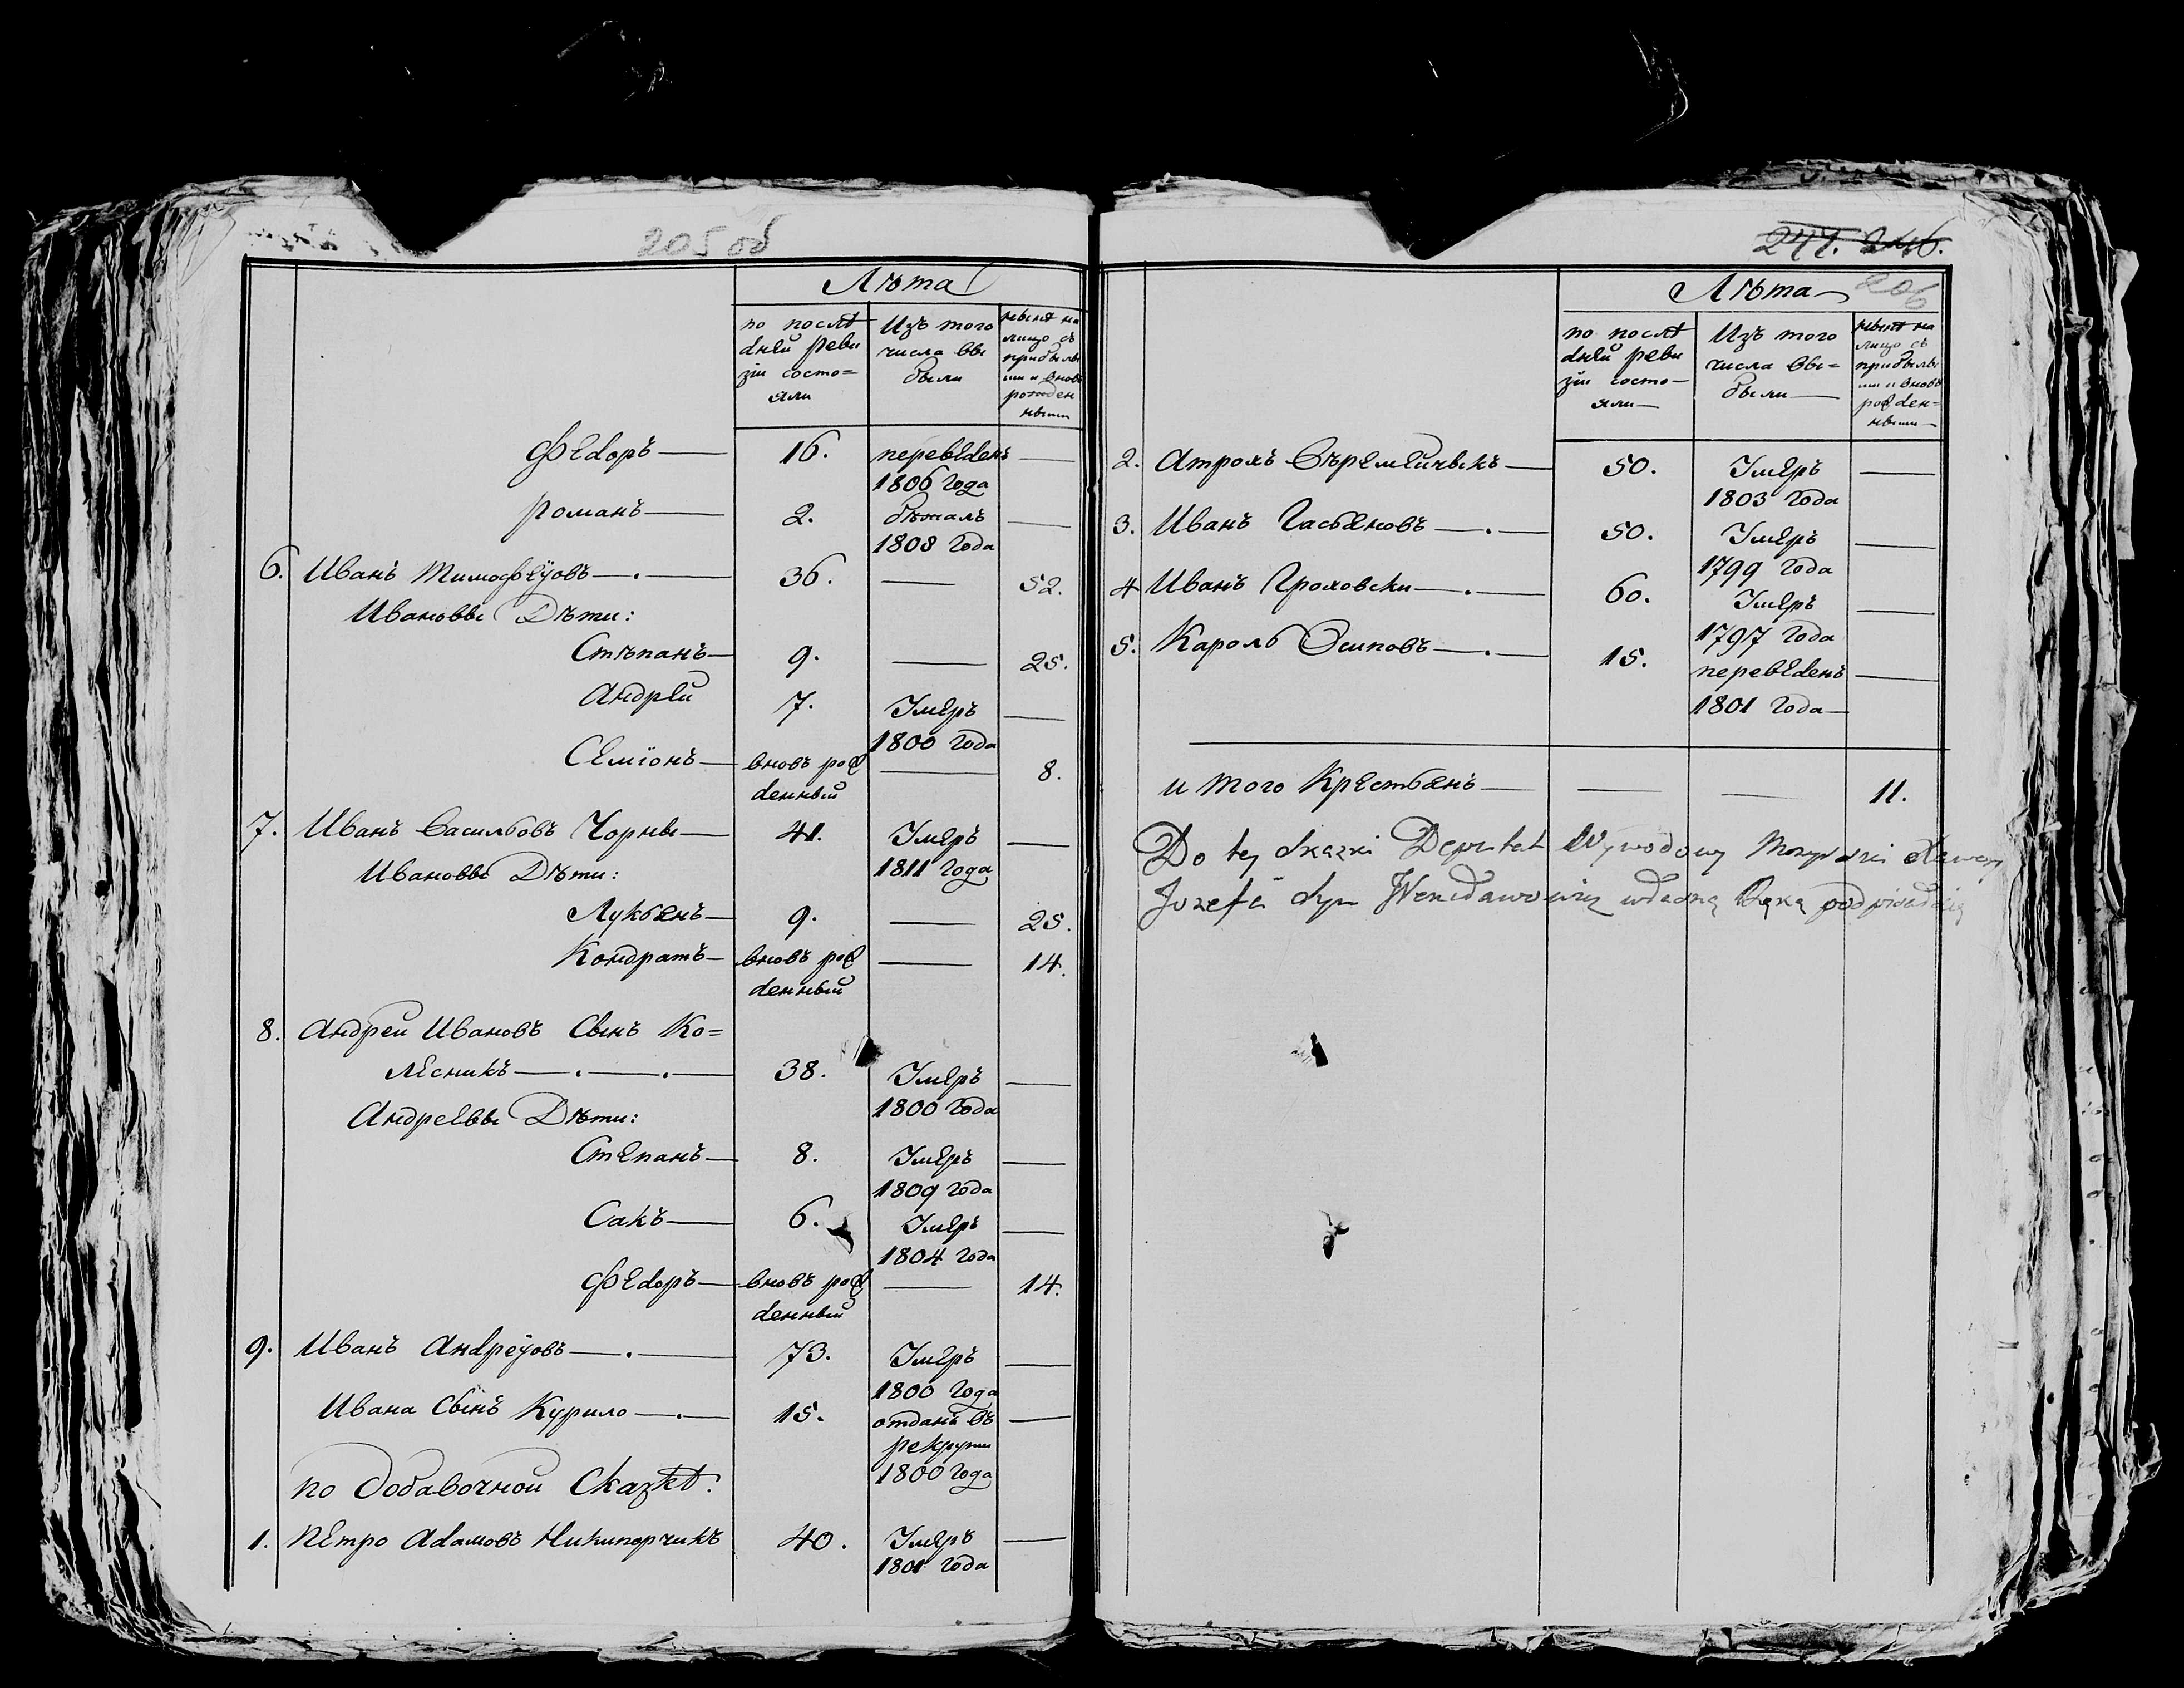 205 об
Лѣта
по послѣ
дней реви
зіи состо=
яли
Изъ того
числа вы
были
нынѣ на
лицо съ
прибылы
ми и вновь
рожден
ными
Федоръ — 16. переведенъ —
1806 года
Романъ — 2. бѣжалъ —
1808 года
6. Иванъ Тимофеуовъ — 36. — 52.
Ивановы Дѣти:
Стѣпанъ — 9. — 25.
Андрей 7. Умеръ —
1800 года
Семіонъ — вновь рож — 8.
денный
7. Иванъ Васильовъ Чорны — 41. Умеръ —
1811 года
Ивановы Дѣти:
Лукьянъ — 9. — 25.
Кондратъ — вновь рож — 14.
денный
8. Андреи Ивановъ Сынъ Ко=
лесникъ — 38. Умеръ —
1800 года
Андреевы Дѣти:
Степанъ — 8. Умеръ —
1809 года
Сакъ — 6. Умеръ —
1804 года
Федоръ — вновь рож — 14.
денный
9. Иванъ Андреуовъ — 73. Умеръ —
1800 года
Ивана Сынъ Курило — 15. отданъ въ —
рекруты
1800 года
по добавочной Сказкѣ:
1. Петро Адамовъ Никипорчикъ 40. Умеръ —
1801 года
247. 246.
206
Лѣта
по послѣ
дней реви
зіи состо—
яли—
Изъ того
числа вы=
были—
нынѣ на
лицо съ
прибылы
ми и вновь
рожден=
ными—
2. — 50. Умеръ —
1803 года
3. Иванъ Касьяновъ — 50. Умеръ —
1799 года
4 Иванъ Гроховски — 60. Умеръ —
1797 года
5. Кароль Осиповъ — 15. переведенъ —
1801 года —
и того Крестьянъ — — — 11.
Do tey skazki Deputat Wywodowy
Jozefa syn własną Ręką podpisał się